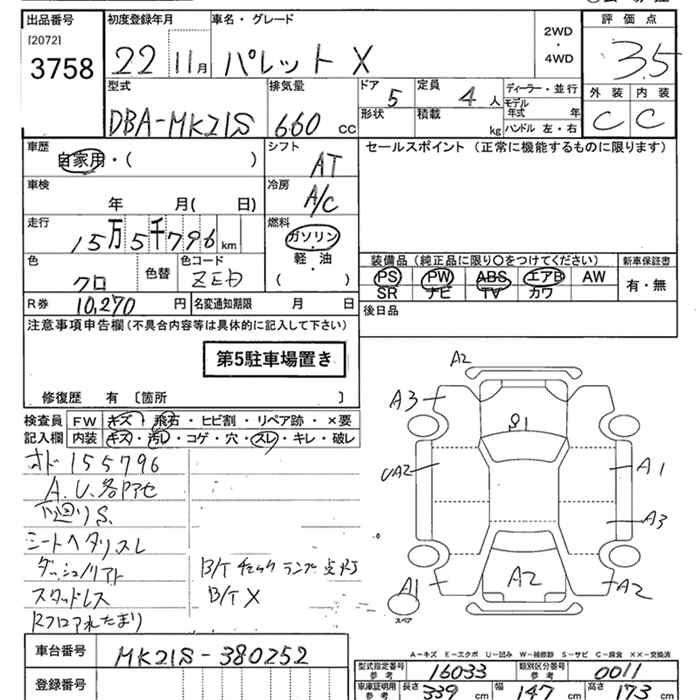 出品番号 初度登録年月 車名・グレード 評価点
[2072] 2WD
・
4WD
3758 22 11月 パレット X 3.5
型式 排気量 ドア 定員 ディーラー・並行 外装 内装
DBA-MK21S 660 cc 5 4 人 モデル年式 年 C C
形状 積載 kg ハンドル 左・右
車歴 シフト セールスポイント (正常に機能するものに限ります)
自家用・( ) AT
車検 冷房
年 月( 日) A/C
走行 燃料
15万5千796 km ガソリン
軽・油
( ・ )
色 色替 色コード 装備品 (純正品に限り○をつけてください) 新車保証書
クロ ZED PS PW ABS エアB AW 有・無
SR ナビ TV カワ
R券 10,270 円 名変通知期限 月 日 後日品
注意事項申告欄 (不具合内容等は具体的に記入して下さい)
第5駐車場置き
修復歴 有 〔箇所 〕
検査員 FW キズ・飛石・ヒビ割・リペア跡・×要
記入欄 内装 キズ・汚レ・コゲ・穴・スレ・キレ・破レ
オド 155796
A.U.各アセ
下廻りS.
シートヘタリスレ
B/Tチェックランプ点灯
スタッドレス B/T X
A2
A3
S1
UA2
A1
A3
A2
A1
A2
スペア
A-キズ E-エクボ U-凹み W-補修跡 S-サビ C-腐食 XX-交換済
車台番号 MK21S-380252
型式指定番号 参考 16033 類別区分番号 参考 0011
登録番号
車庫証明用 参考 長さ 339 cm 幅 147 cm 高さ 173 cm